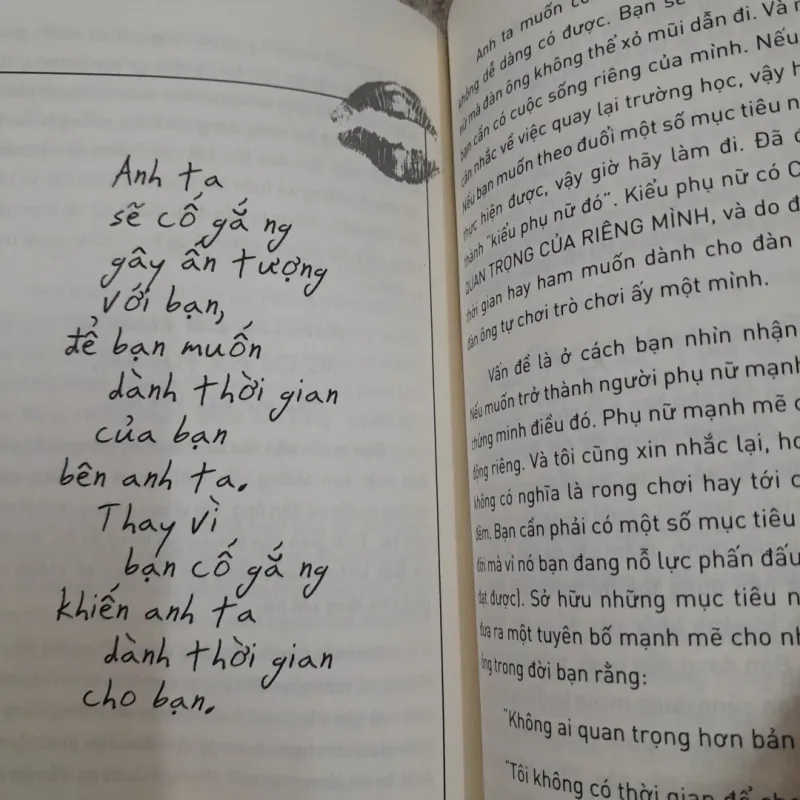 Anh ta
sẽ cố gắng
gây ấn tượng
với bạn,
để bạn muốn
dành thời gian
của bạn
bên anh ta.
Thay vì
bạn cố gắng
khiến anh ta
dành thời gian
cho bạn.
Anh ta muốn
không dễ dàng có được. Bạn sẽ
nữ mà đàn ông không thể xỏ mũi dẫn đi. Và
bạn cần có cuộc sống riêng của mình. Nếu
cân nhắc về việc quay lại trường học, vậy
Nếu bạn muốn theo đuổi một số mục tiêu
thực hiện được, vậy giờ hãy làm đi. Đã
thành "kiểu phụ nữ đó". Kiểu phụ nữ có
QUAN TRỌNG CỦA RIÊNG MÌNH, và do
thời gian hay ham muốn dành cho đàn
đàn ông tự chơi trò chơi ấy một mình.
Vấn đề là ở cách bạn nhìn nhận
Nếu muốn trở thành người phụ nữ mạnh
chứng minh điều đó. Phụ nữ mạnh mẽ
động riêng. Và tôi cũng xin nhắc lại,
không có nghĩa là rong chơi hay tới
đêm. Bạn cần phải có một số mục tiêu
đời mà vì nó bạn đang nỗ lực phấn đấu
đạt được). Sở hữu những mục tiêu
đưa ra một tuyên bố mạnh mẽ cho
ông trong đời bạn rằng:
"Không ai quan trọng hơn bản
"Tôi không có thời gian để